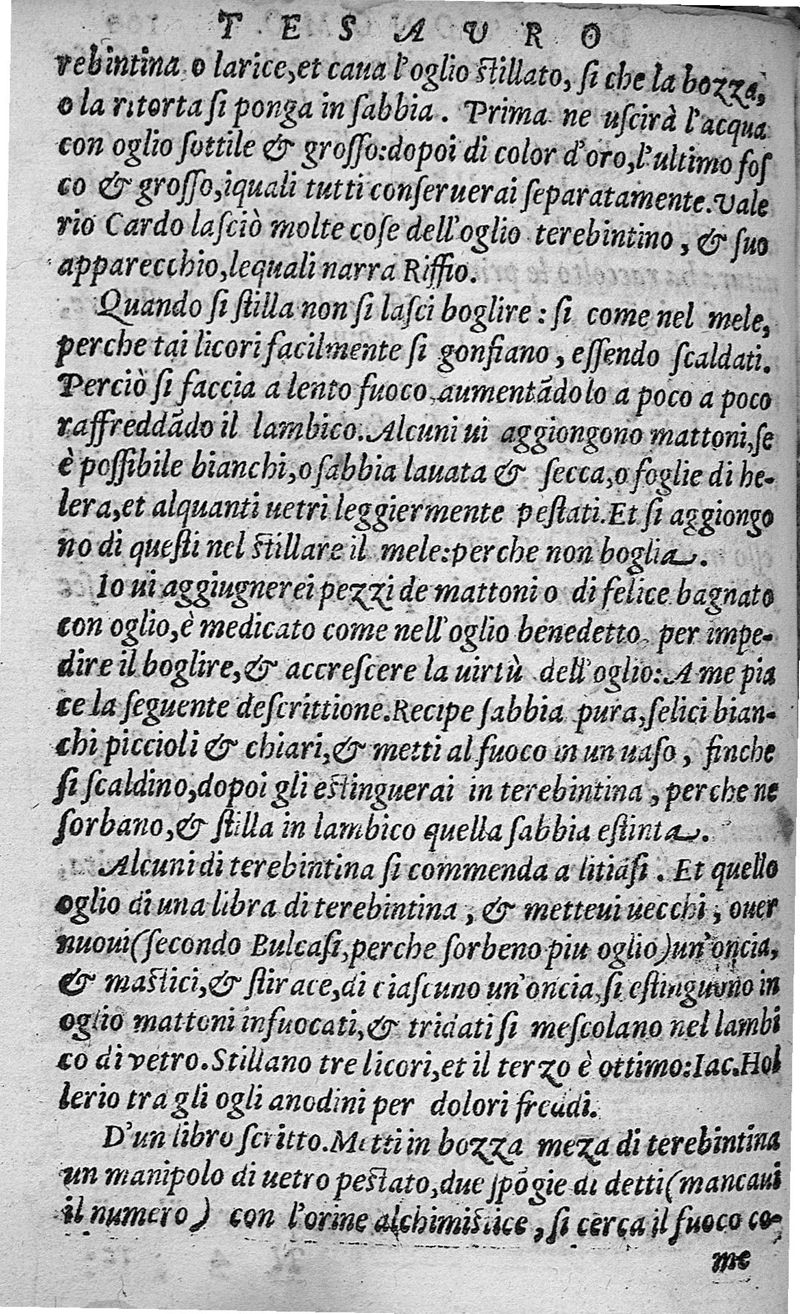 TESAURO
rebintina o larice,et caua l'oglio ſtillato, ſi che la bozza,
o la ritorta ſi ponga in ſabbia. Prima ne uſcirà l'acqua
con oglio ſottile & groſſo:dopoi di color d'oro,l'ultimo foſ
co & groſſo,iquali tutti conſeruerai ſeparatamente.Vale
rio Cardo laſciò molte coſe dell'oglio terebintino, & ſuo
apparecchio,lequali narra Riffio.
Quando ſi ſtilla non ſi laſci boglire: ſi come nel mele,
perche tai licori facilmente ſi gonfiano, eſſendo ſcaldati.
Perciò ſi faccia a lento fuoco aumentādolo a poco a poco
raffreddādo il lambico.Alcuni ui aggiongono mattoni,ſe
è poſſibile bianchi,o ſabbia lauata & ſecca,o foglie di he-
lera,et alquanti uetri leggiermente peſtati.Et ſi aggiongo
no di queſti nel ſtillare il mele:perche non boglia.
Io ui aggiugnerei pezzi de mattoni o di felice bagnato
con oglio,è medicato come nell'oglio benedetto per impe-
dire il boglire,& accreſcere la uirtù dell'oglio:A me pia
ce la ſeguente deſcrittione.Recipe ſabbia pura,ſelici bian-
chi piccioli & chiari,& metti al fuoco in un uaſo, finche
ſi ſcaldino,dopoi gli eſtinguerai in terebintina, perche ne
ſorbano,& ſtilla in lambico quella ſabbia eſtinta.
Alcuni di terebintina ſi commenda a litiaſi. Et quello
oglio di una libra di terebintina, & metteui uecchi, ouer
nuoui(ſecondo Bulcaſi,perche ſorbeno piu oglio)un'oncia,
& maſtici,& ſtirace,di ciaſcuno un'oncia,ſi eſtinguono in
oglio mattoni infuocati,& tridati ſi meſcolano nel lambi
co di vetro.Stillano tre licori,et il terzo è ottimo:Iac.Hol
lerio tra gli ogli anodini per dolori freudi.
D'un libro ſcritto.Metti in bozza meza di terebintina
un manipolo di uetro peſtato,due ſpōgie di detti(mancaui
il numero) con l'orine alchimiſtice, ſi cerca il fuoco co-
me